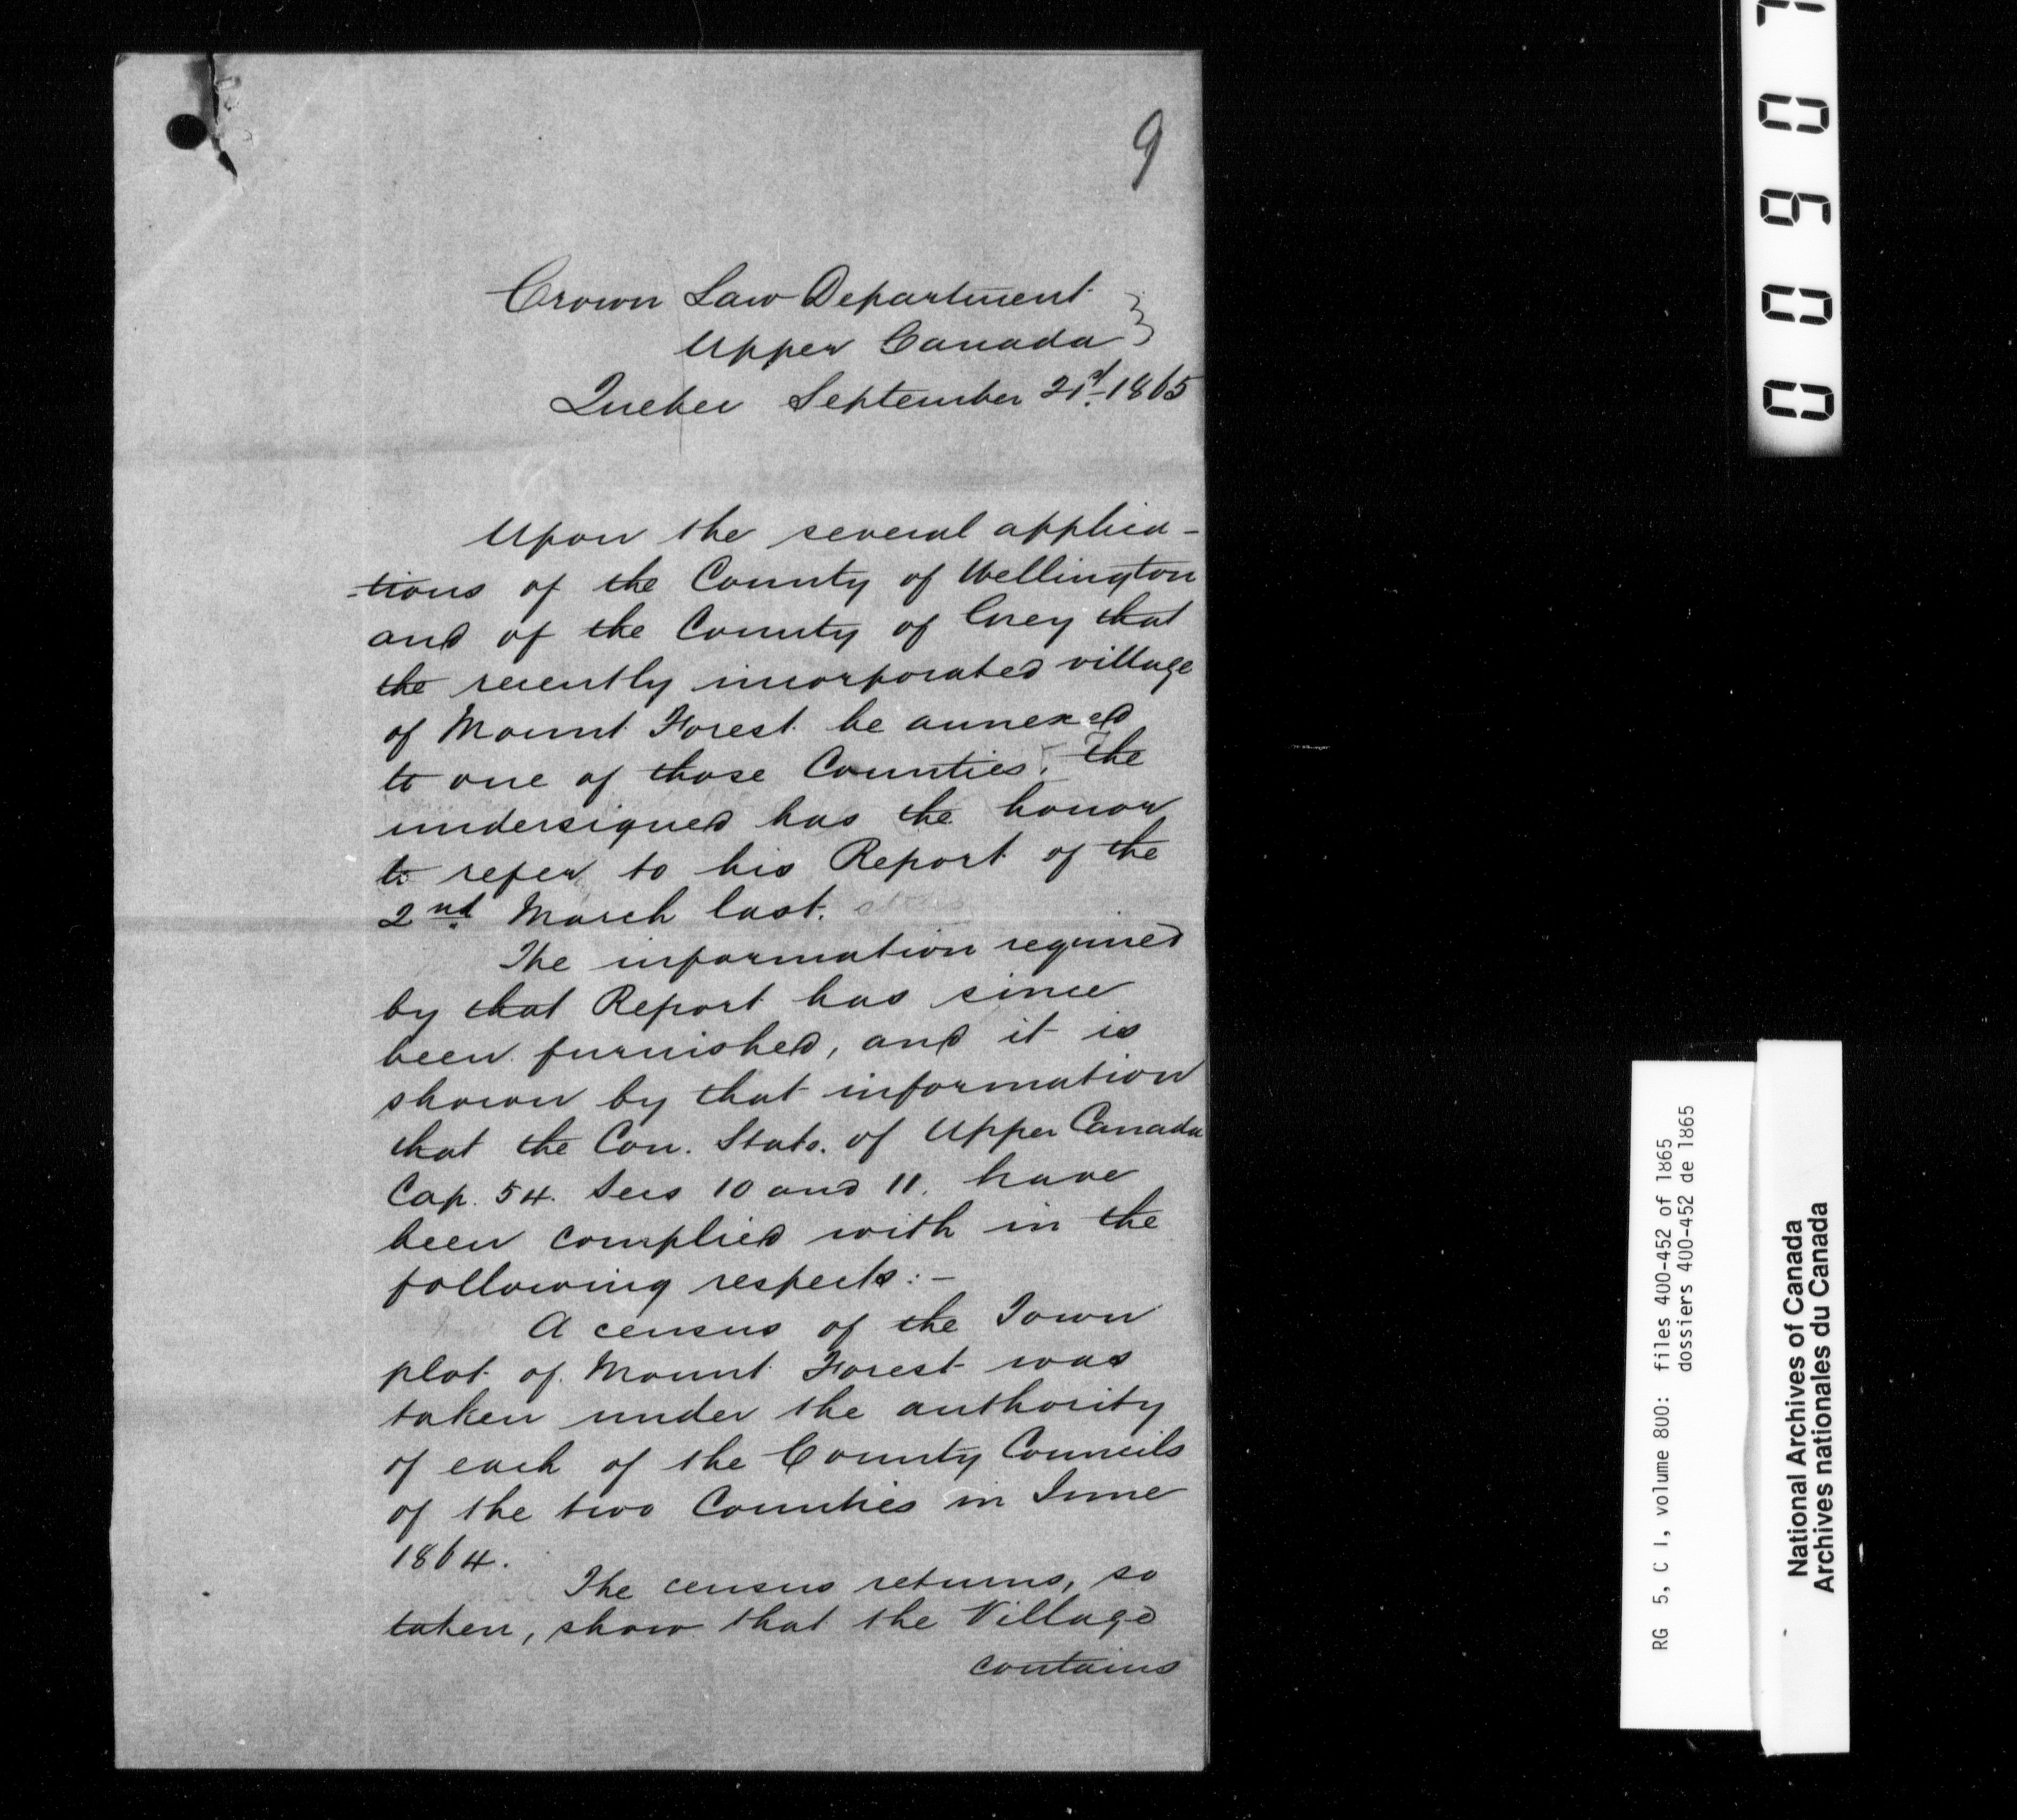 9
Crown Law Department
Upper Canada
Quebec September 21st 1865
Upon the several applica-
-tions of the County of Wellington
and of the County of Grey that
the recently incorporated village
of Mount Forest be annexed
to one of those Counties. The
undersigned has the honor
to refer to his Report of the
2nd March last.
The information required
by that Report has since
been furnished, and it is
shown by that information
that the Con. Stats. of Upper Canada
Cap. 54. Secs 10 and 11. have
been complied with in the
following respects:-
A census of the Town
plot of Mount Forest was
taken under the authority
of each of the County Councils
of the two Counties in June
1864.
The census returns, so
taken, show that the Village
contains
0090
RG 5, C 1, volume 800: files 400-452 of 1865
dossiers 400-452 de 1865
National Archives of Canada
Archives nationales du Canada